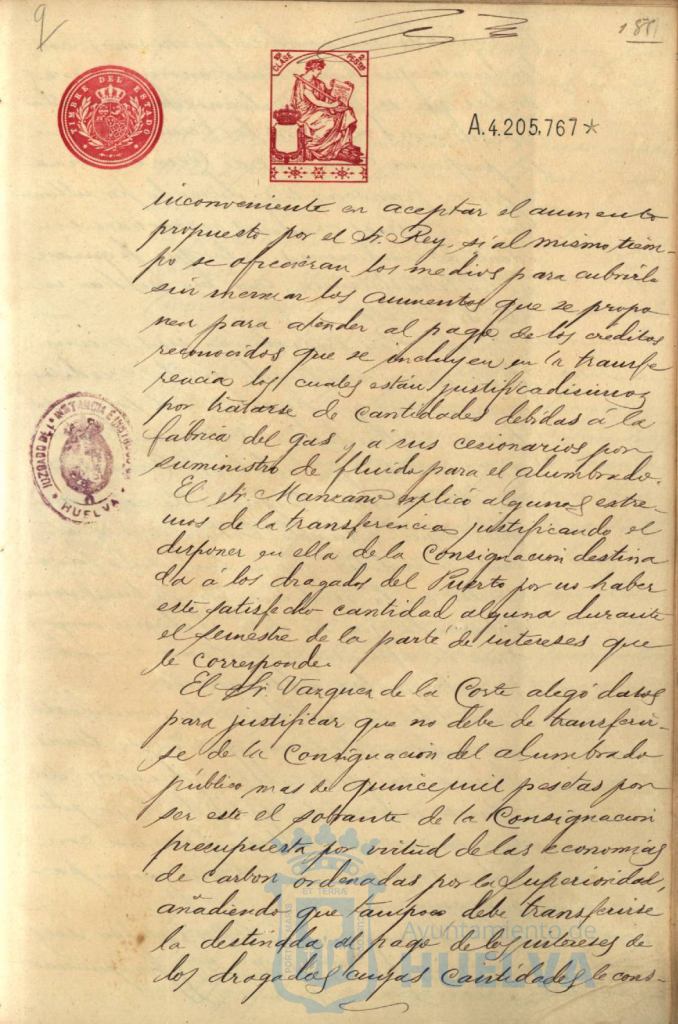 9
188
TIMBRE DEL ESTADO
CLASE
A.4.205.767*
inconveniente en aceptar el aumento
propuesto por el Sr. Rey, si al mismo tiem-
po se ofrecieran los medios para cubrirlo
sin mermar los aumentos que se propo
nen para atender al pago de los creditos
reconocidos que se incluyen en la transfe
rencia los cuales están justificadisimos
por tratarse de cantidades debidas á la
fabrica del gas y á sus cesionarios por
suministro de fluido para el alumbrado.
El Sr. Manzano explicó algunos extre-
mos de la transferencia justificando el
disponer en ella de la Consignacion destina
da á los dragados del Puerto por no haber
este satisfecho cantidad alguna durante
el semestre de la parte de intereses que
le corresponde.
El Sr. Vazquez de la Corte alegó datos
para justificar que no debe de transferir-
se de la Consignacion del alumbrado
público mas de quince mil pesetas por
ser este el sobrante de la Consignacion
presupuesta por virtud de las economias
de carbon ordenadas por la Superioridad,
añadiendo que tampoco debe transferirse
la destinada al pago de los intereses de
los dragados cuyas cantidades le cons-
JUZGADO DE 1ª INSTANCIA E INSTRUCCION
HUELVA
Ayuntamiento de
HUELVA